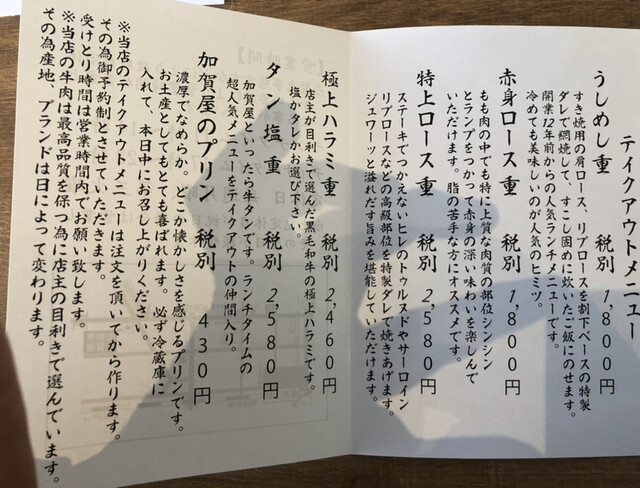 テイクアウトメニュー
うしめし重　税別　1,800円
すき焼用の肩ロース、リブロースを割下ベースの特製
ダレで網焼して、すこし固めに炊いたご飯にのせます。
開業12年前からの人気ランチメニューです。
冷めても美味しいのが人気のヒミツ。
赤身ロース重　税別　1,800円
もも肉の中でも特に上質な肉質の部位シンシン
とランプをつかって赤身の深い味わいを楽しんで
いただけます。脂の苦手な方にオススメです。
特上ロース重　税別　2,580円
ステーキでつかえないヒレのトゥルヌドやサーロイン
リブロースなどの高級部位を特製ダレで焼きあげます。
ジュワーッと溢れだす旨みを堪能していただけます。
極上ハラミ重　税別　2,460円
店主が目利きで選んだ黒毛和牛の極上ハラミです。
塩かタレかお選び下さい。
タン塩重　税別　2,580円
加賀屋といったら牛タンです。ランチタイムの
超人気メニューをテイクアウトの仲間入り。
加賀屋のプリン　税別　430円
濃厚でなめらか。どこか懐かしさを感じるプリンです。
お土産としてもとても喜ばれます。必ず冷蔵庫に
入れて、本日中にお召し上がりください。
※当店のテイクアウトメニューは注文を頂いてから作ります。
その為御予約制とさせていただきます。
受けとり時間は営業時間内でお願い致します。
※当店の牛肉は最高品質を保つ為に店主の目利きで選んでいます。
その為産地、ブランドは日によって変わります。